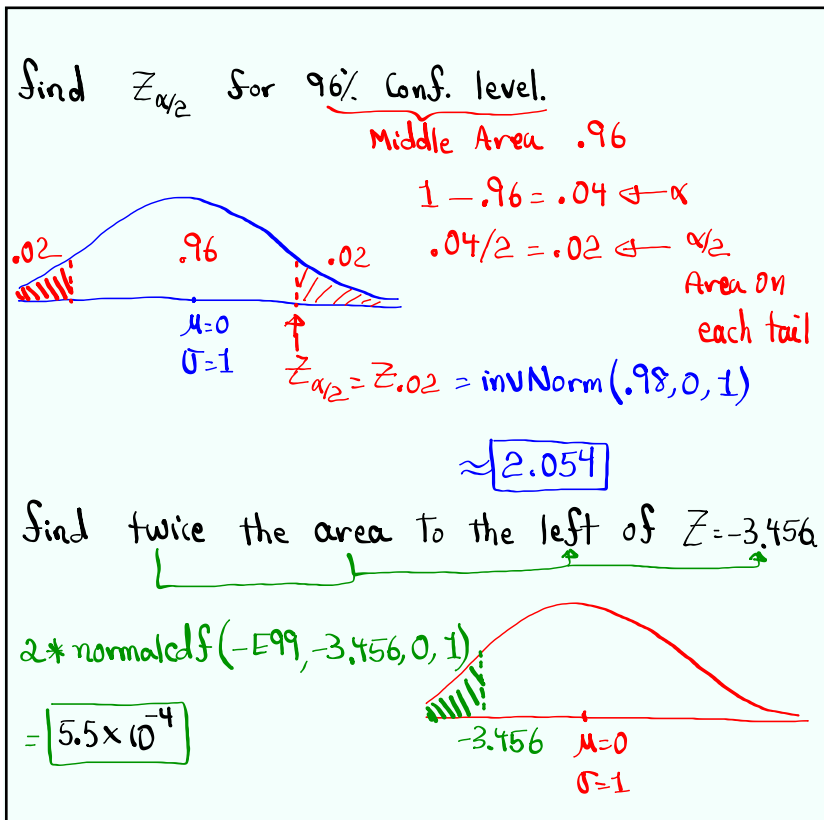 find Zα/2 for 96% Conf. level.
Middle Area .96
1 - .96 = .04 ← α
.02 .96 .02 .04/2 = .02 ← α/2
Area On
each tail
μ=0
σ=1
Zα/2 = Z.02 = invNorm(.98, 0, 1)
≈ 2.054
find twice the area to the left of Z=-3.456
2*normalcdf(-E99, -3.456, 0, 1)
= 5.5×10^-4
-3.456 μ=0
σ=1